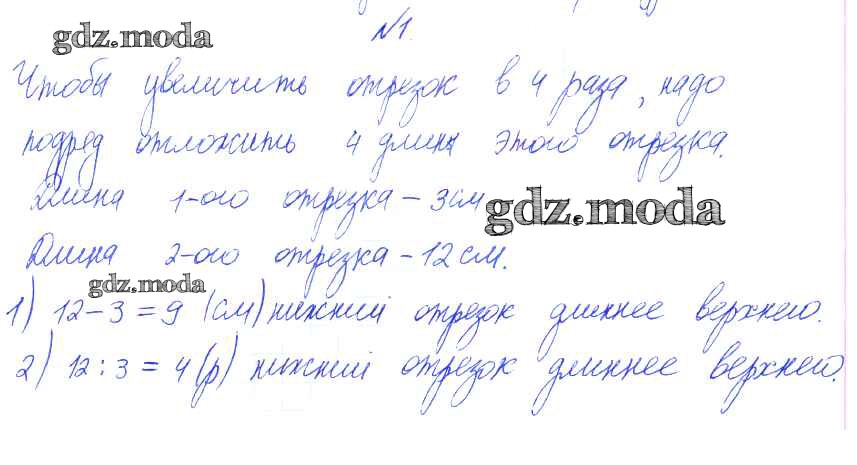 №1.
gdz.moda
Чтобы увеличить отрезок в 4 раза, надо
подряд отложить 4 длины этого отрезка.
Длина 1-ого отрезка – 3см
gdz.moda
Длина 2-ого отрезка – 12 см.
gdz.moda
1) 12 – 3 = 9 (см) нижний отрезок длиннее верхнего.
2) 12 : 3 = 4 (р) нижний отрезок длиннее верхнего.